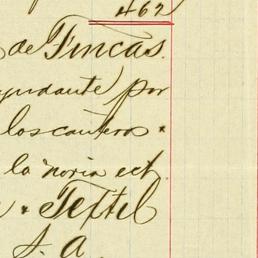 462
de Fincas.
por
los cantero *
la noria ect.
* Textil
S. A.